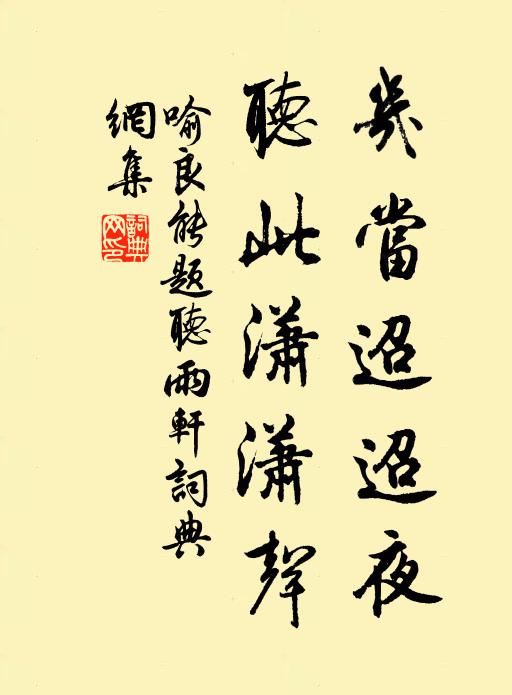 幾當迢迢夜
聽此瀟瀟聲
喻良能題聽雨軒詞典
網集
詞典網印